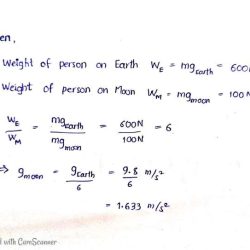 en,
Weight of person on Earth W_E = mg_Earth = 600
Weight of person on Moon W_M = mg_moon = 100
W_E / W_M = mg_Earth / mg_moon = 600N / 100N = 6
⇒ g_moon = g_Earth / 6 = 9.8 / 6 m/s²
= 1.633 m/s²
d with CamScanner